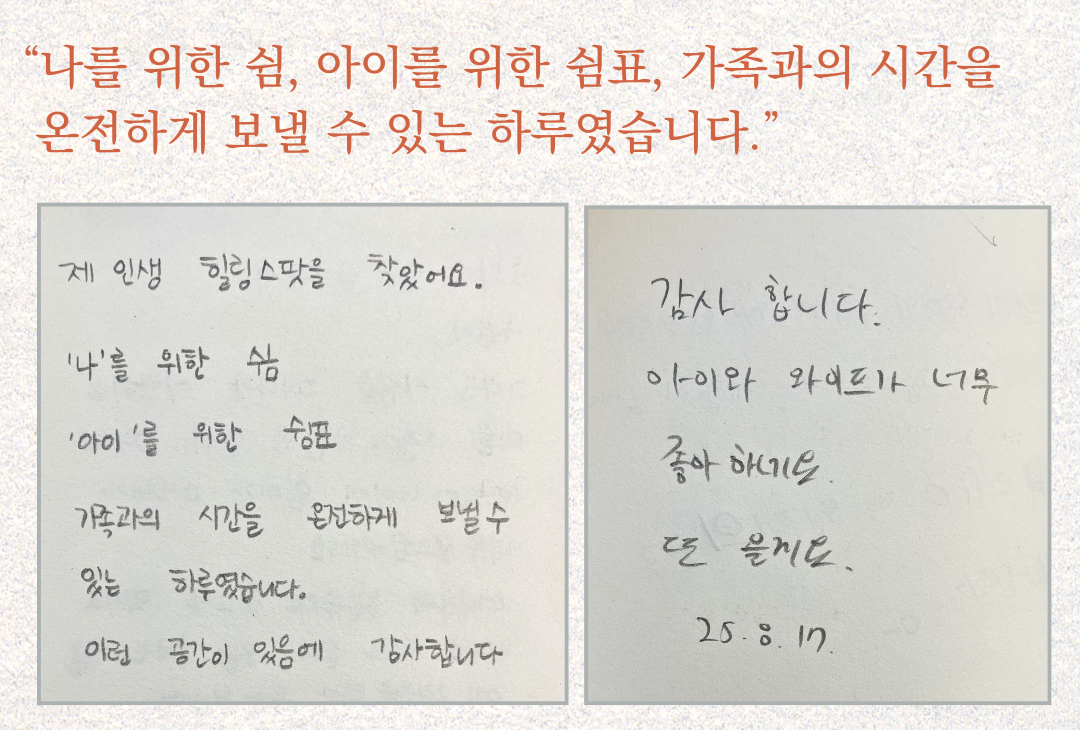 “나를 위한 쉼, 아이를 위한 쉼표, 가족과의 시간을
온전하게 보낼 수 있는 하루였습니다.”
제 인생 힐링스팟을 찾았어요.
'나'를 위한 쉼
'아이'를 위한 쉼표
가족과의 시간을 온전하게 보낼 수
있는 하루였습니다.
이런 공간이 있음에 감사합니다
감사 합니다.
아이와 와이프가 너무
좋아 하네요.
또 올게요.
25. 8. 17.